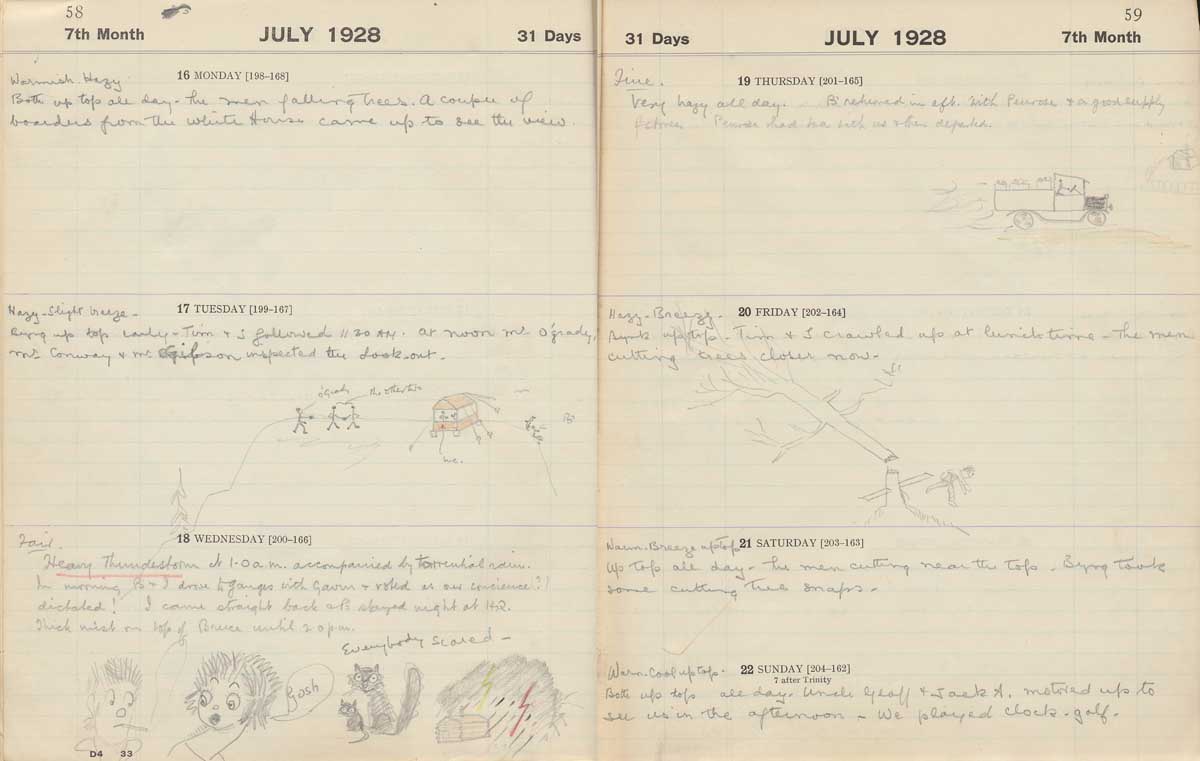 58
7th Month JULY 1928 31 Days
16 MONDAY [198–168]
Warmish. Hazy.
Both up top all day. The men falling trees. A couple of
boarders from the White House came up to see the view.
17 TUESDAY [199–167]
Hazy. Slight breeze.
Byng up top early. Tim & I followed 11.20 AM. At noon Mr. O'Grady,
Mr. Conway & Mr. Gibson inspected the look-out.
O'Grady
the other two
we.
18 WEDNESDAY [200–166]
Fair.
Heavy Thunderstorm at 1.0 a.m. accompanied by torrential rain.
In morning B & I drove to Ganges with Gavin & voted as our conscience?!
dictated! I came straight back & B stayed night at H.Q.
Thick mist on top of Bruce until 2.0 p.m.
Everybody scared –
Gosh
D4 33
59
31 Days JULY 1928 7th Month
19 THURSDAY [201–165]
Fine.
Very hazy all day. B returned in aft. with Penrose & a good supply
of stores. Penrose had tea with us & then departed.
20 FRIDAY [202–164]
Hazy. Breezy.
up top. Tim & I crawled up at lunch time. The men
cutting trees closer now.
21 SATURDAY [203–163]
Warm. Breeze up top
Up top all day. The men cutting near the top. Byng took
some cutting tree snaps.
22 SUNDAY [204–162]
7 after Trinity
Warm. Cool up top.
Both up top all day. Uncle Geoff & Jack A. motored up to
see us in the afternoon – We played clock-golf.